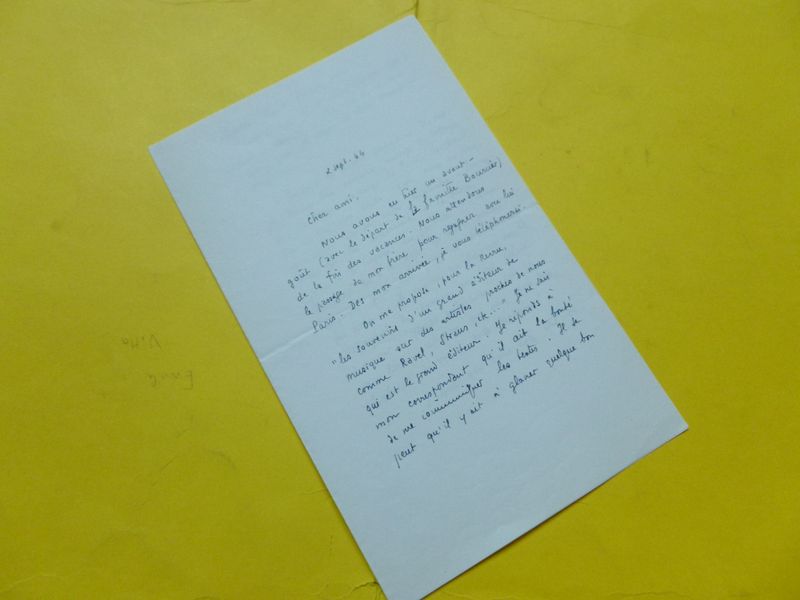 2 sept. 64
Cher ami.
Nous avons eu hier un avant-
goût (avec le départ de la famille Boursier)
de la fin des vacances. Nous attendons
le passage de mon frère pour regagner
Paris. Dès mon arrivée, je vous téléphonerai.
On me propose, pour la revue,
"les souvenirs d'un grand éditeur de
musique sur des artistes proches de nous
comme Ravel, Straus, etc..." Je ne sais
qui est le grand éditeur. Je réponds à
mon correspondant qu'il ait la bonté
de me communiquer les textes. Il se
peut qu'il y ait à glaner quelque bon